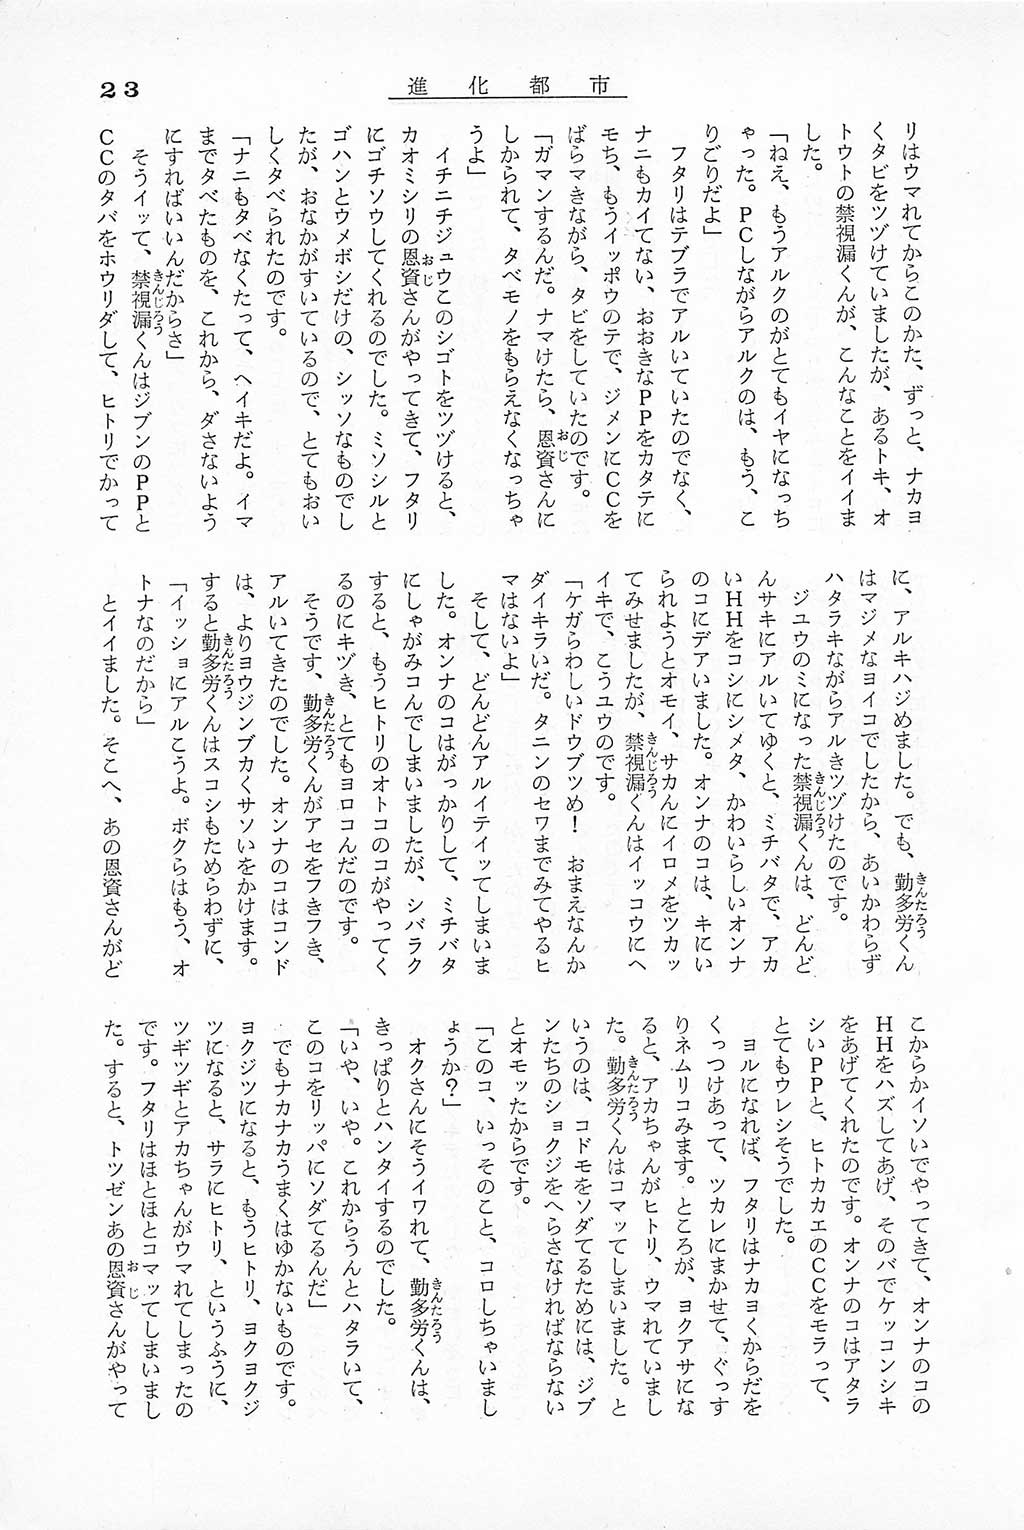 23
進化都市
リはウマれてからこのかた、ずっと、ナカヨ
くタビをツヅけていましたが、あるトキ、オ
トウトの禁視漏くんが、こんなことをイイま
した。
「ねえ、もうアルクのがとてもイヤになっち
ゃった。ＰＣしながらアルクのは、もう、こ
りごりだよ」
フタリはテブラでアルいていたのでなく、
ナニもカイてない、おおきなＰＰをカタテに
モち、もうイッポウのテで、ジメンにＣＣを
ばらマきながら、タビをしていたのです。
「ガマンするんだ。ナマけたら、恩資さんに
しかられて、タベモノをもらえなくなっちゃ
うよ」
イチニチジュウこのシゴトをツヅけると、
カオミシリの恩資さんがやってきて、フタリ
にゴチソウしてくれるのでした。ミソシルと
ゴハンとウメボシだけの、シッソなものでし
たが、おなかがすいているので、とてもおい
しくタべられたのです。
「ナニもタべなくたって、ヘイキだよ。イマ
までタべたものを、これから、ダさないよう
にすればいいんだからさ」
そうイッて、禁視漏くんはジブンのＰＰと
ＣＣのタバをホウリダして、ヒトリでかって
に、アルキハジめました。でも、勤多労くん
はマジメなヨイコでしたから、あいかわらず
ハタラキながらアルきツヅけたのです。
ジユウのミになった禁視漏くんは、どんど
んサキにアルいてゆくと、ミチバタで、アカ
いＨＨをコシにシメタ、かわいらしいオンナ
のコにデアいました。オンナのコは、キにい
られようとオモイ、サカんにイロメをツカッ
てみせましたが、禁視漏くんはイッコウにヘ
イキで、こうユウのです。
「ケガらわしいドウブツめ！　おまえなんか
ダイキラいだ。タニンのセワまでみてやるヒ
マはないよ」
そして、どんどんアルイテイッてしまいま
した。オンナのコはがっかりして、ミチバタ
にしゃがみコんでしまいましたが、シバラク
すると、もうヒトリのオトコのコがやってく
るのにキヅき、とてもヨロコんだのです。
そうです、勤多労くんがアセをフきフき、
アルいてきたのでした。オンナのコはコンド
は、よりヨウジンブカくサソいをかけます。
すると勤多労くんはスコシもためらわずに、
「イッショにアルこうよ。ボクらはもう、オ
トナなのだから」
とイイました。そこへ、あの恩資さんがど
こからかイソいでやってきて、オンナのコの
ＨＨをハズしてあげ、そのバでケッコンシキ
をあげてくれたのです。オンナのコはアタラ
シいＰＰと、ヒトカカエのＣＣをモラって、
とてもウレシそうでした。
ヨルになれば、フタリはナカヨくからだを
くっつけあって、ツカレにまかせて、ぐっす
りネムリコみます。ところが、ヨクアサにな
ると、アカちゃんがヒトリ、ウマれていまし
た。勤多労くんはコマッてしまいました。と
いうのは、コドモをソダてるためには、ジブ
ンたちのショクジをへらさなければならない
とオモッたからです。
「このコ、いっそのこと、コロしちゃいまし
ょうか？」
オクさんにそうイワれて、勤多労くんは、
きっぱりとハンタイするのでした。
「いや、いや。これからうんとハタラいて、
このコをリッパにソダてるんだ」
でもナカナカうまくはゆかないものです。
ヨクジツになると、もうヒトリ、ヨクヨクジ
ツになると、サラにヒトリ、というふうに、
ツギツギとアカちゃんがウマれてしまったの
です。フタリはほとほとコマッてしまいまし
た。すると、トツゼンあの恩資さんがやって